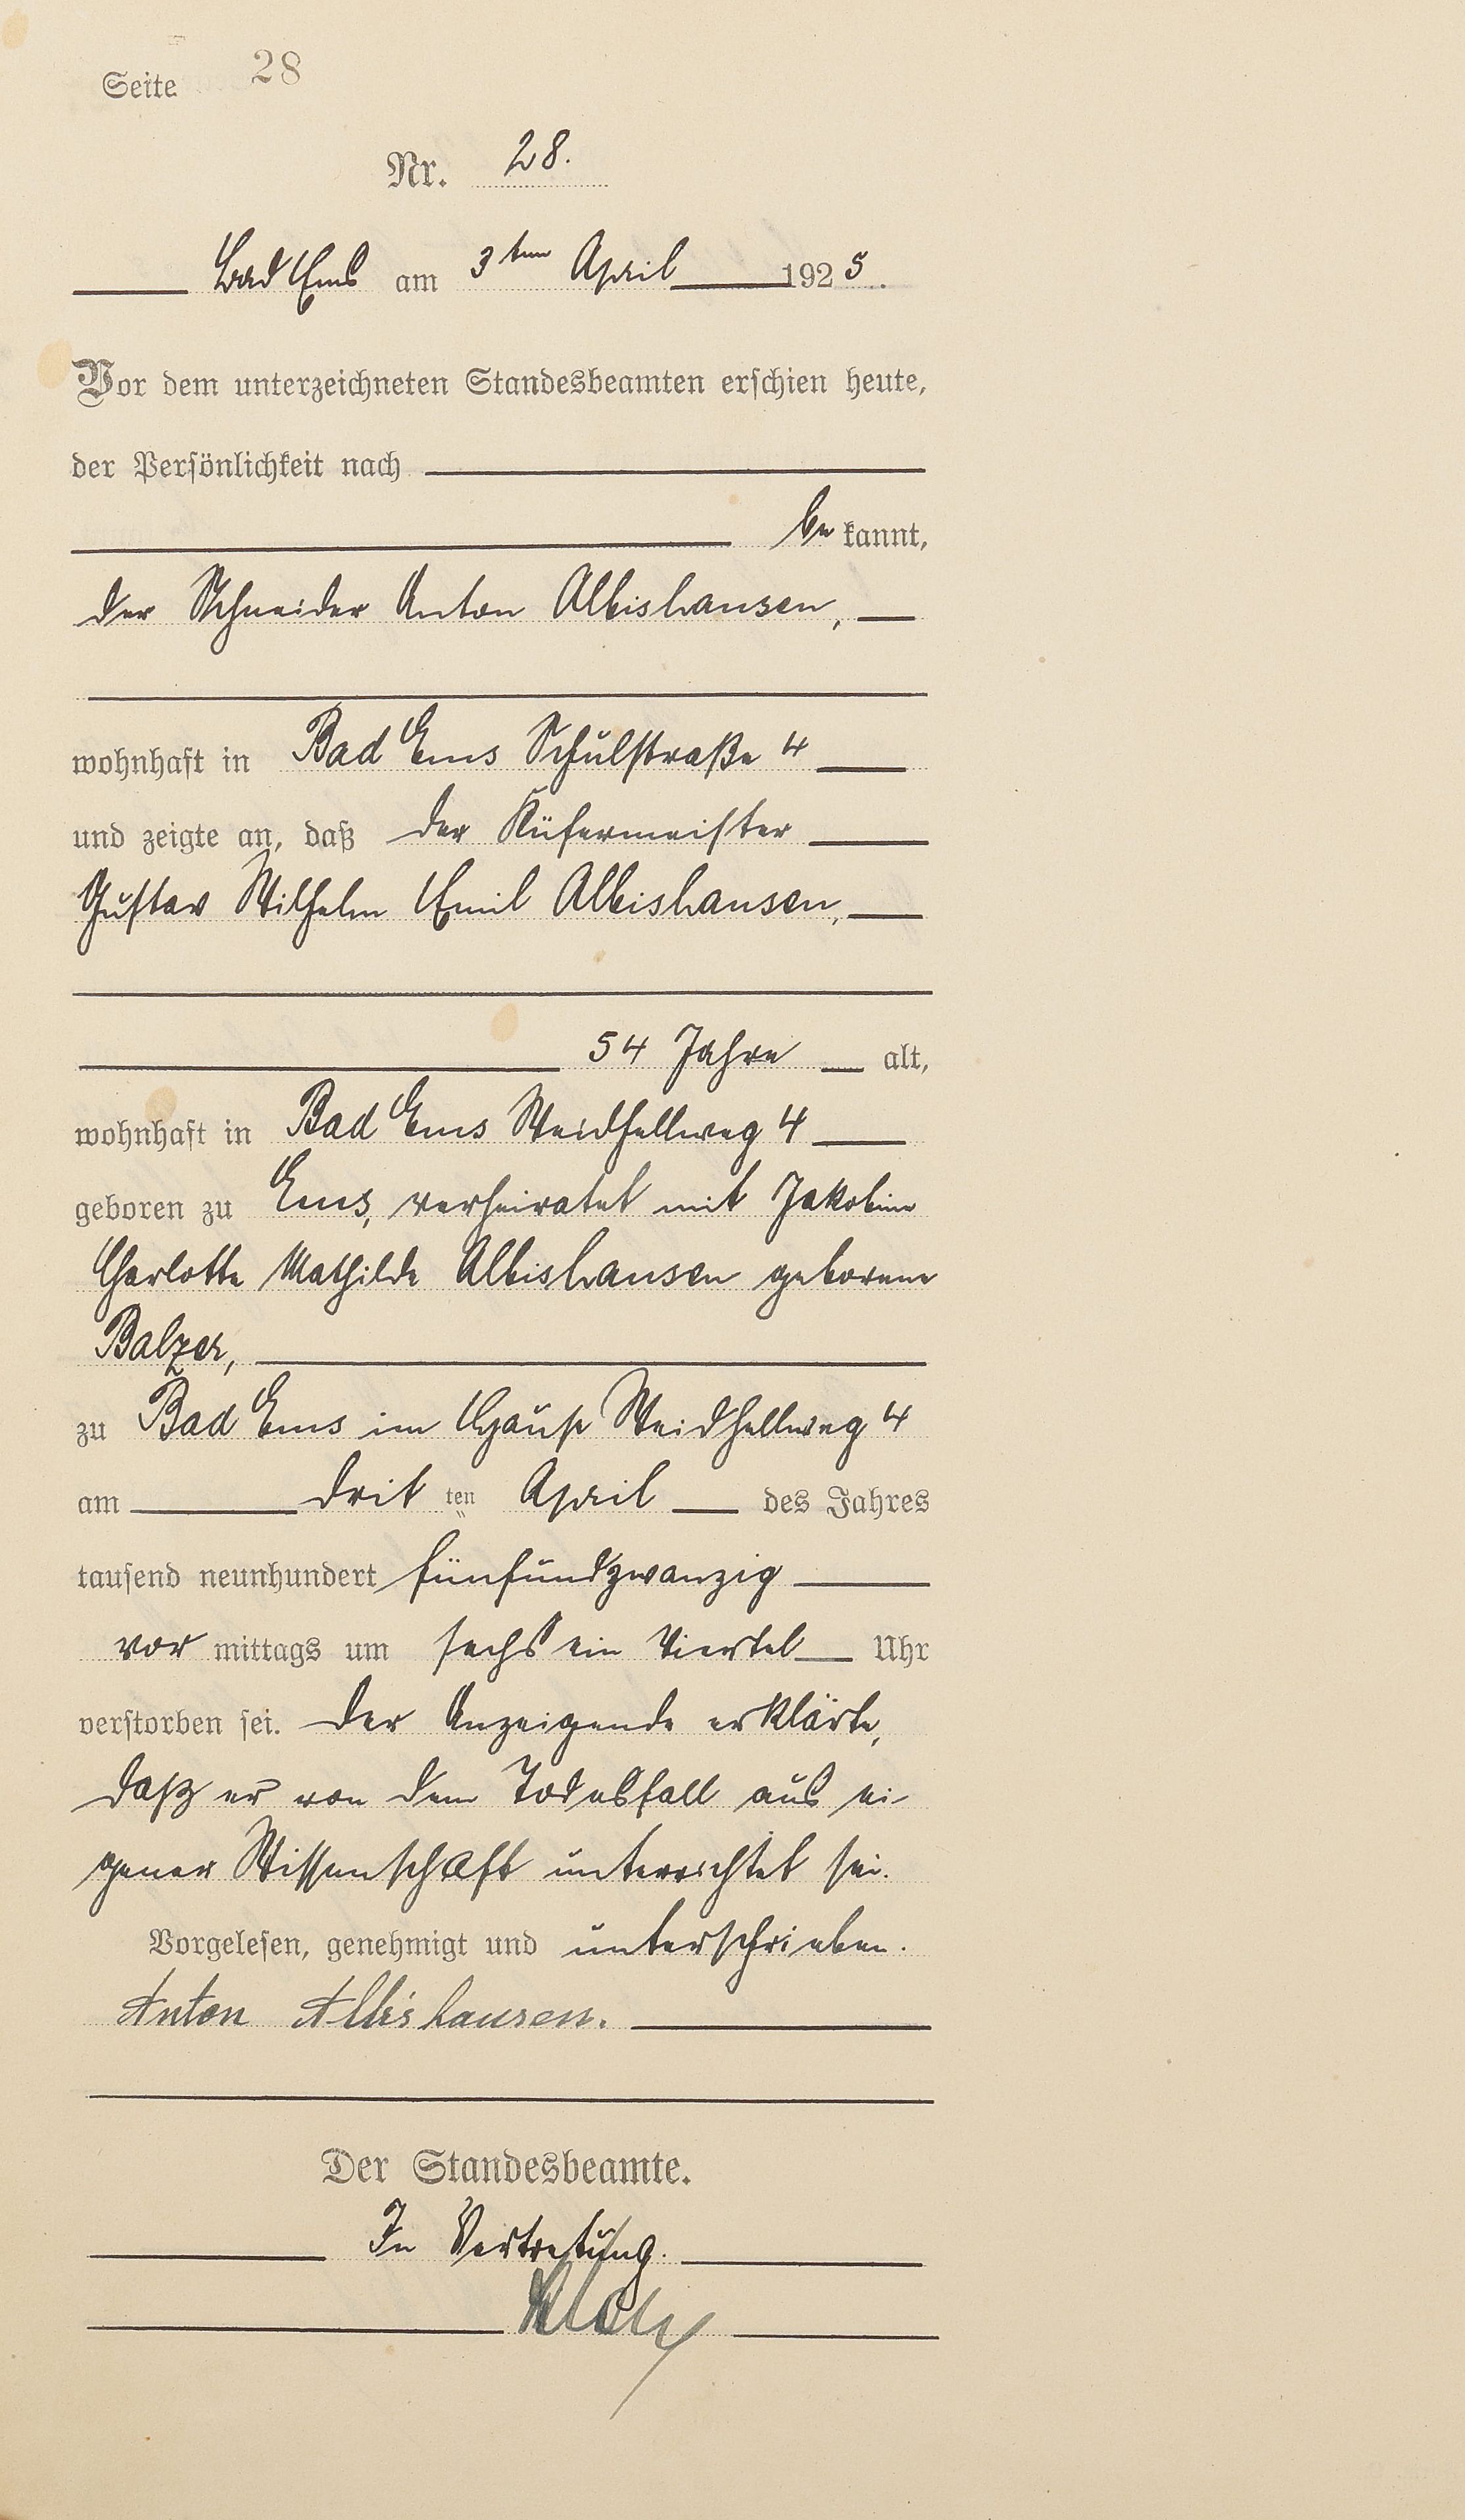 Seite 28
Nr. 28.
Bad Ems am 3ten April 1925.
Vor dem unterzeichneten Standesbeamten erschien heute,
der Persönlichkeit nach
be kannt,
der Schneider Anton Albishausen,
wohnhaft in Bad Ems Schulstraße 4
und zeigte an, daß der Küfermeister
Gustav Wilhelm Emil Albishausen,
54 Jahre alt,
wohnhaft in Bad Ems Weidhellweg 4
geboren zu Ems, verheiratet mit Jakobine
Charlotte Mathilde Albishausen geborene
Balzer,
zu Bad Ems im Hause Weidhellweg 4
am drit ten April des Jahres
tausend neunhundert fünfundzwanzig
vor mittags um sechs ein Viertel Uhr
verstorben sei. Der Anzeigende erklärte,
daß er von dem Todesfall aus ei-
gener Wissenschaft unterrichtet sei.
Vorgelesen, genehmigt und unterschrieben.
Anton Albishausen.
Der Standesbeamte.
In Vertretung.